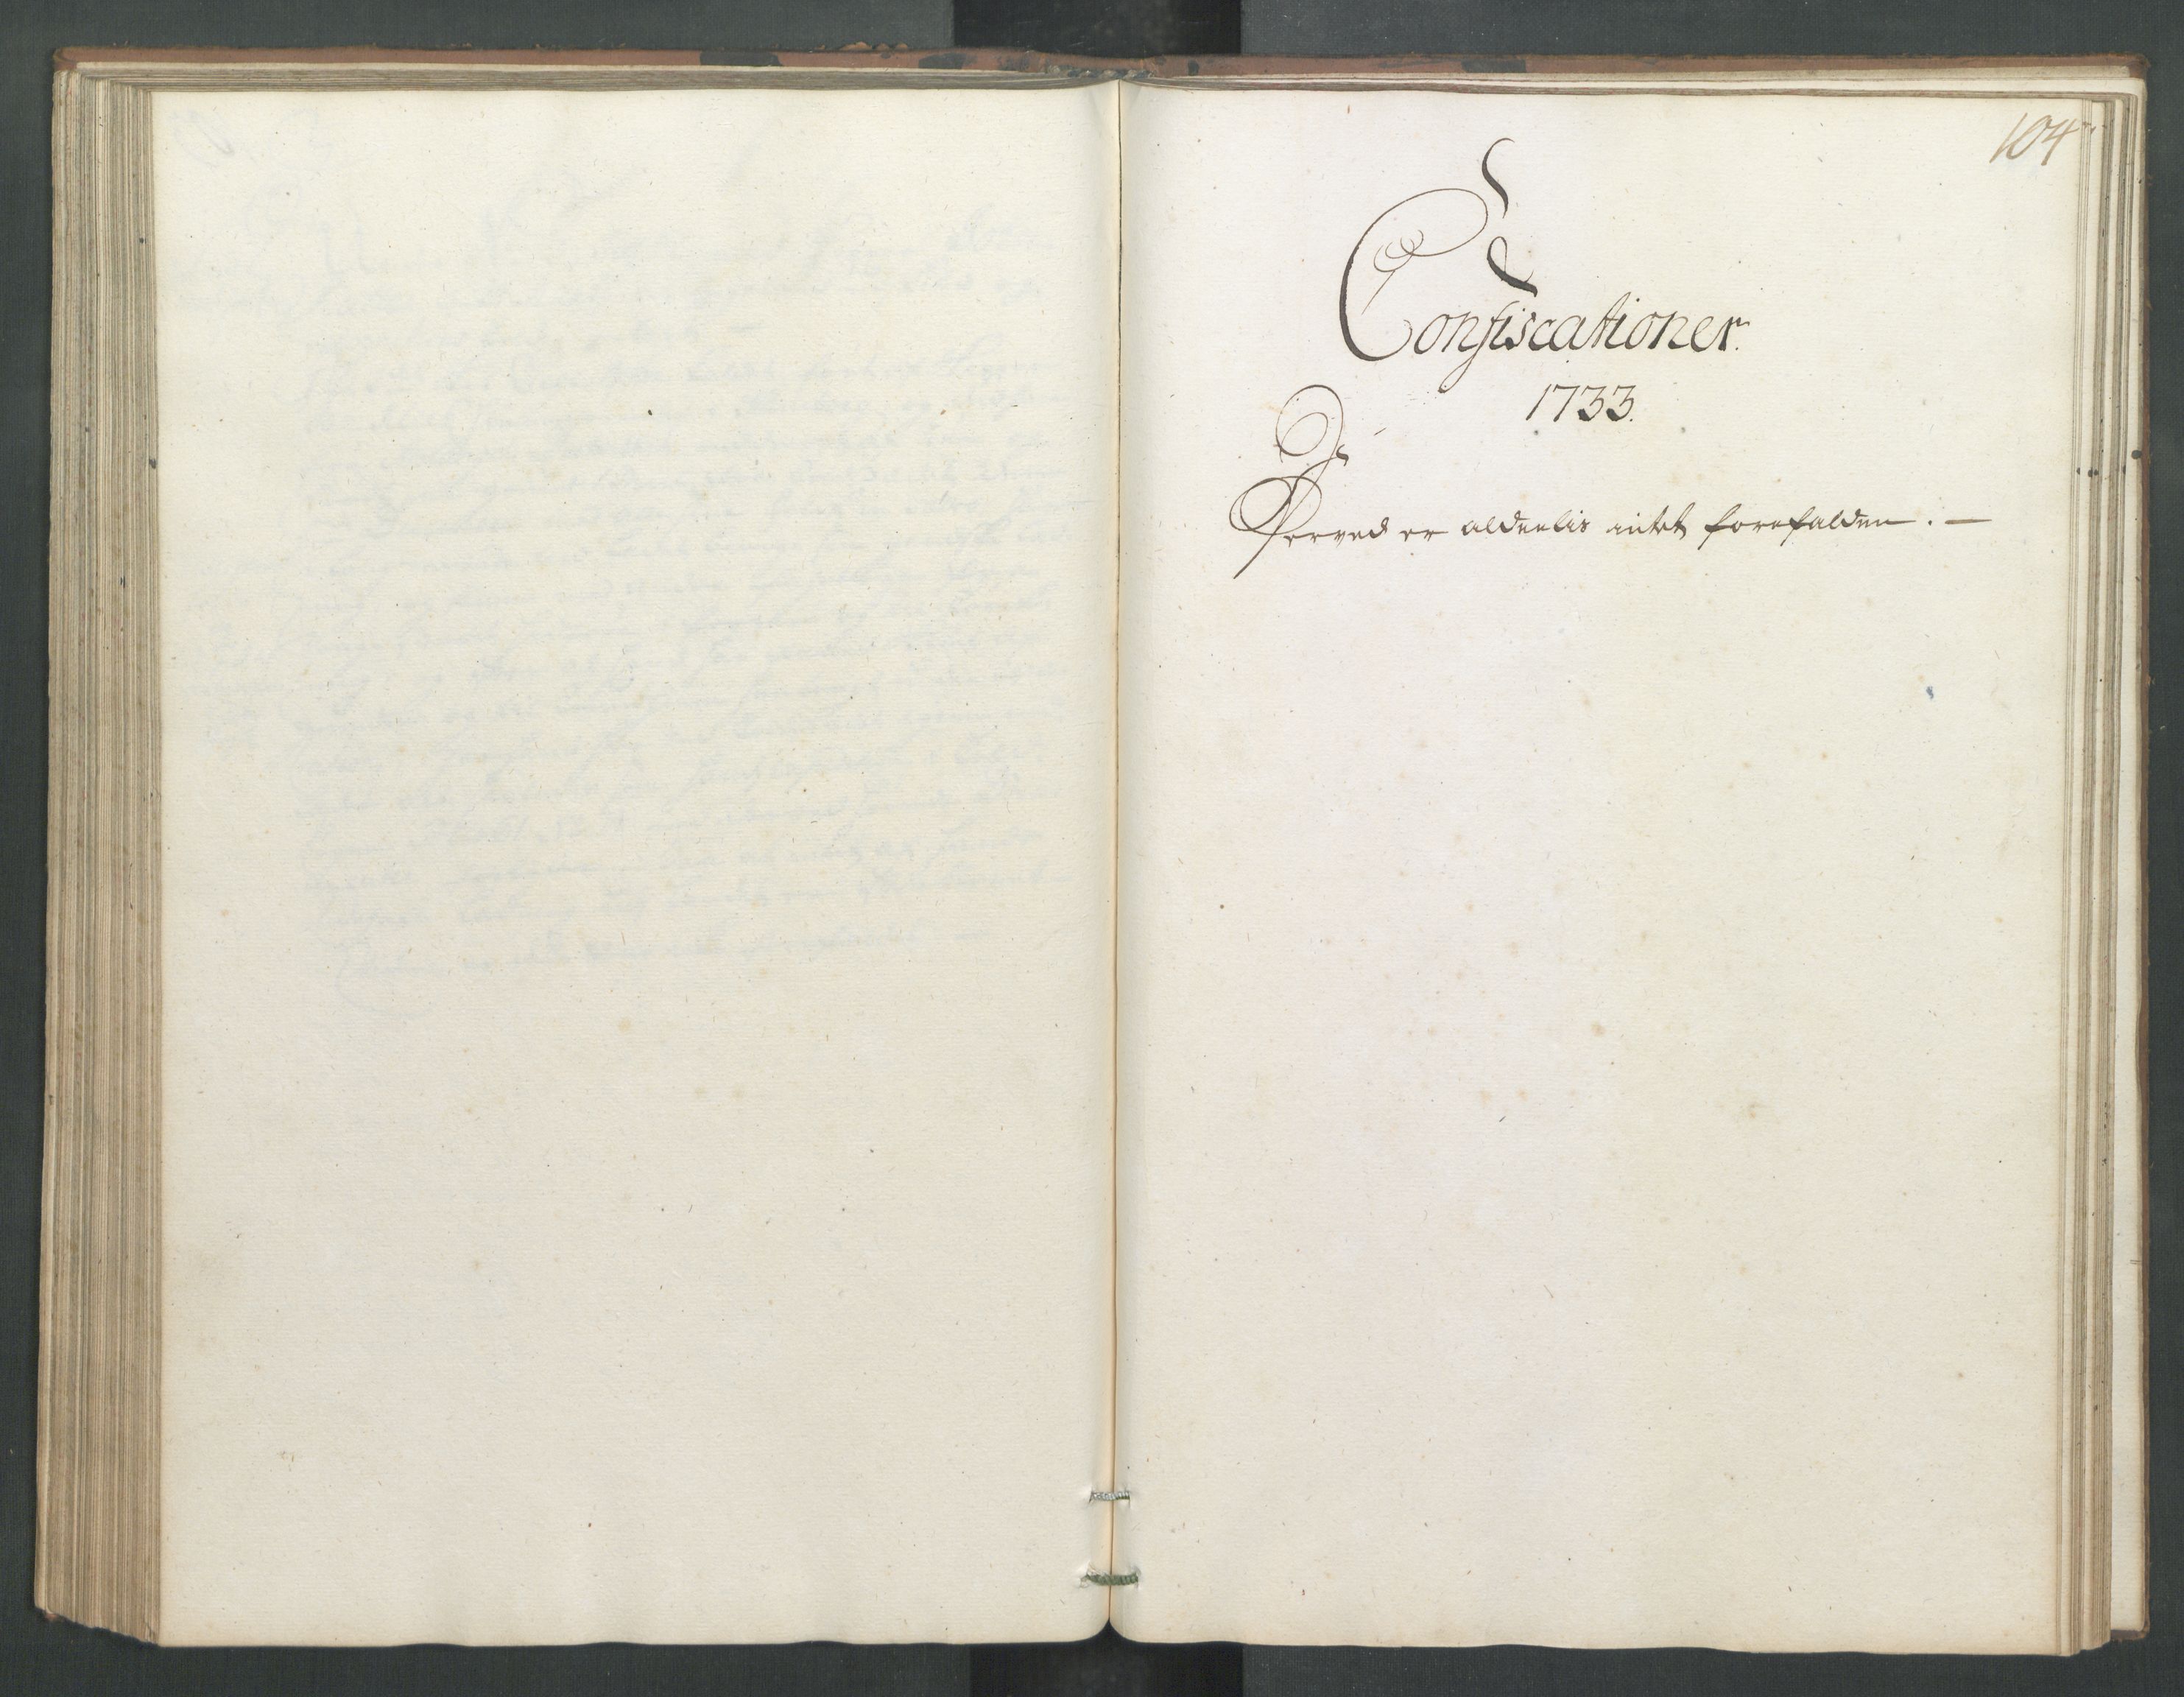 104
Confiscationer
1733.
Herved er aldeelis intet forefalden. —